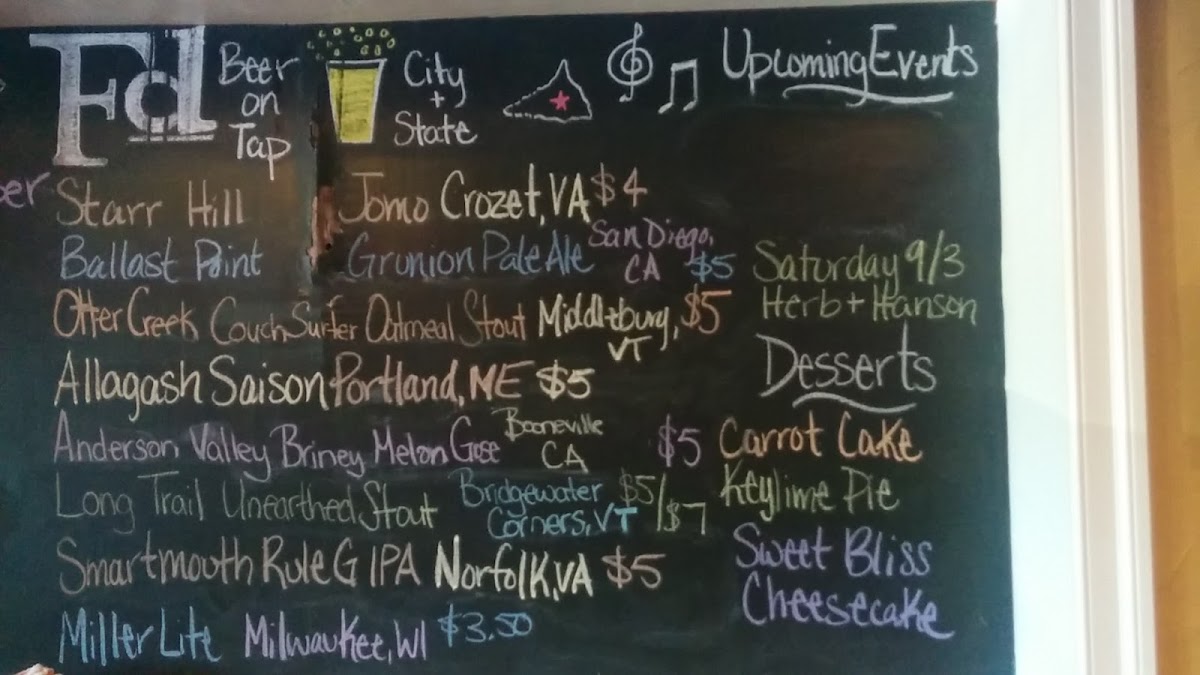 Fd Beer on Tap City + State Upcoming Events
Starr Hill Jomo Crozet, VA $4
Ballast Point Grunion Pale Ale San Diego, CA $5
Otter Creek Couch Surfer Oatmeal Stout Middlebury, VT $5
Allagash Saison Portland, ME $5
Anderson Valley Briney Melon Gose Booneville CA $5
Long Trail Unearthed Stout Bridgewater Corners, VT $5/$7
Smartmouth Rule G IPA Norfolk, VA $5
Miller Lite Milwaukee, WI $3.50
Saturday 9/3
Herb + Hanson
Desserts
Carrot Cake
Keylime Pie
Sweet Bliss
Cheesecake